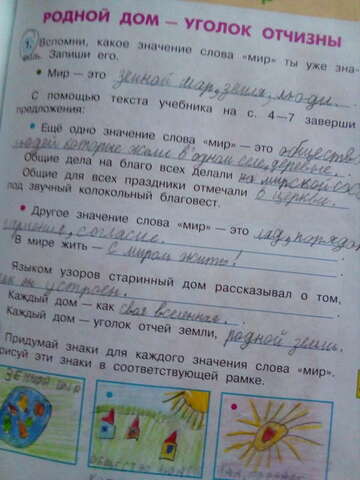 РОДНОЙ ДОМ — УГОЛОК ОТЧИЗНЫ
1. Вспомни, какое значение слова «мир» ты уже зна-
ешь. Запиши его.
• Мир — это земной шар, земля, люди.
С помощью текста учебника на с. 4—7 заверши
предложения:
• Ещё одно значение слова «мир» — это общество
людей которые жили в одном селе, деревне.
Общие дела на благо всех делали на мирской
Общие для всех праздники отмечали в церкви
под звучный колокольный благовест.
• Другое значение слова «мир» — это лад, порядок,
гармония, согласие.
В мире жить — с миром жить!
Языком узоров старинный дом рассказывал о том,
как он устроен.
Каждый дом — как своя вселенная.
Каждый дом — уголок отчей земли, родной земли.
Придумай знаки для каждого значения слова «мир».
Нарисуй эти знаки в соответствующей рамке.
ЗЕМНОЙ ШАР
ОБЩЕСТВО
ЛАД, ПОРЯДОК